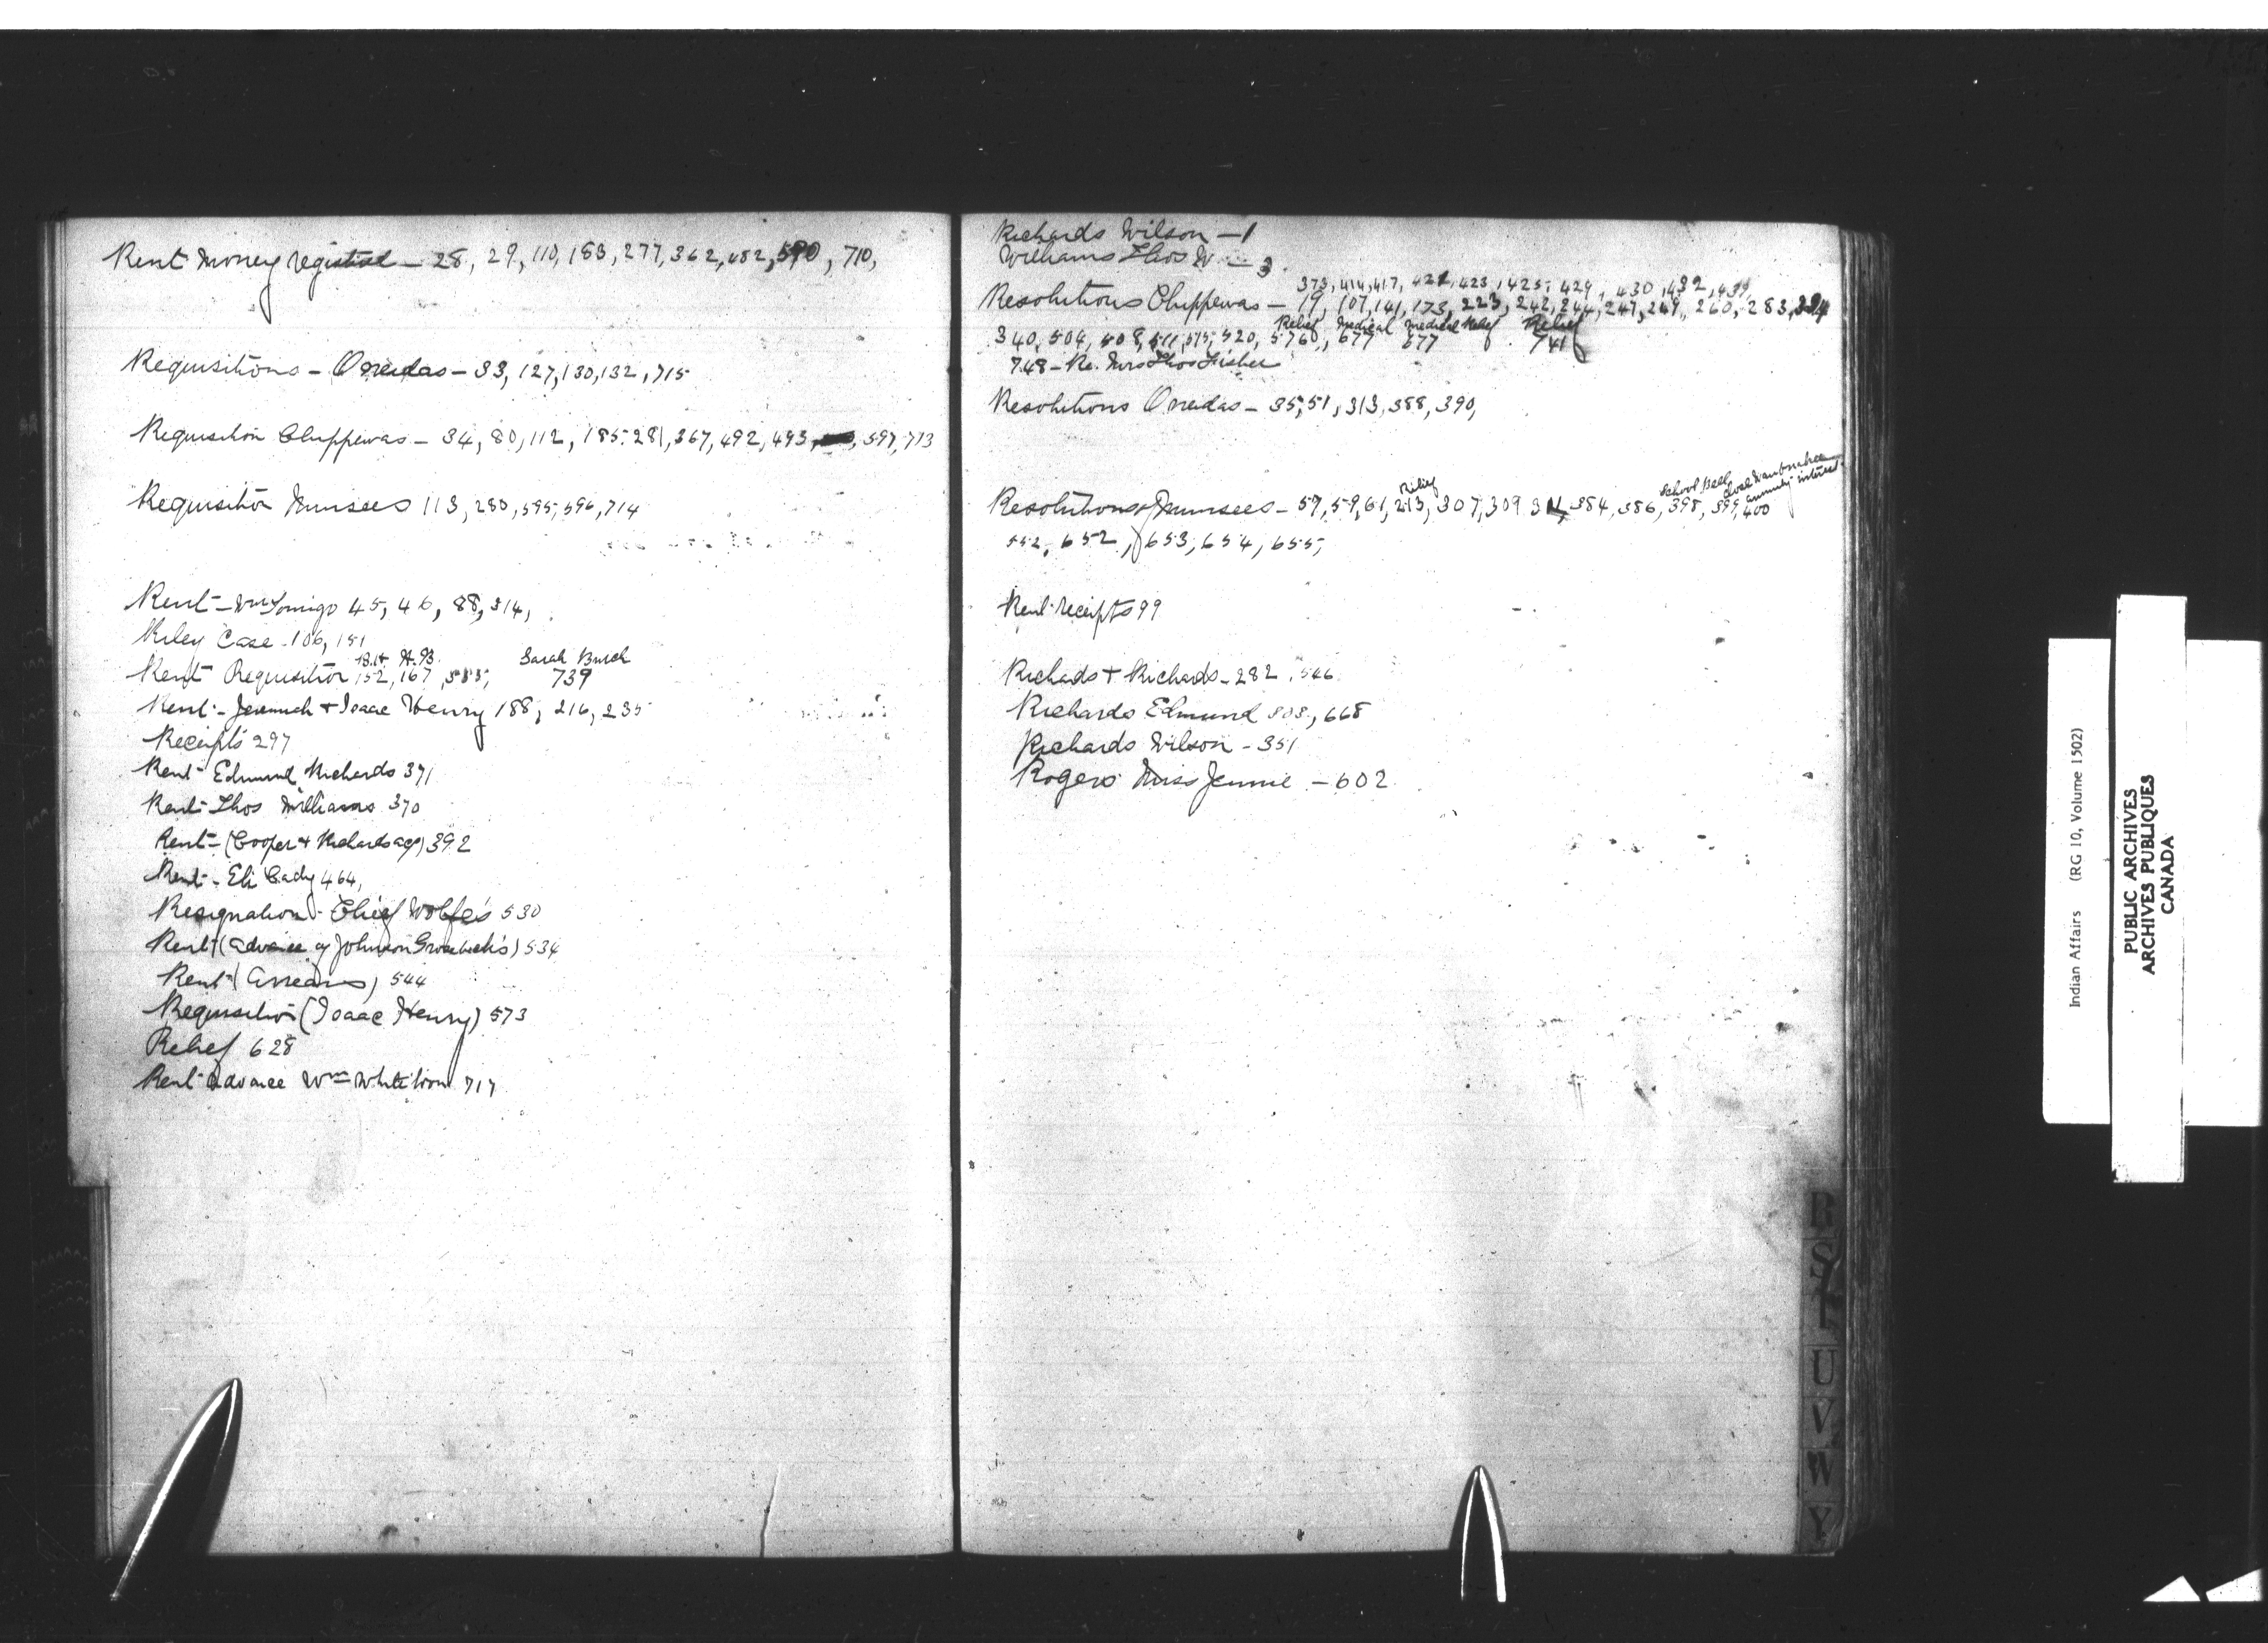 Rent Money register — 28, 29, 110, 183, 277, 362, 482, 590, 710,
Requisitions — Oneidas — 33, 127, 130, 132, 715
Requisition Chippewas — 34, 80, 112, 185, 281, 367, 492, 493, 597, 713
Requisition Munsees 113, 280, 595, 596, 714
Rent — Wm 45, 46, 88, 314,
Riley Case - 106, 151
Sarah Burch
Rent Requisition 152, 167, 739
Rent - Jeremiah + Isaac Henry 188, 216, 235
Receipts 297
Rent - Edmund Richards 371
Rent - Thos Williams 370
Rent - (Cooper + Richards ) 392
Rent - Eli Cady 464,
Resignation - Chief Wolfe's 530
Rent (advance of Johnson ) 534
Rent (arrears) 544
Requisition (Isaac Henry) 573
Relief 628
Rent advance Wm 717
Richards Wilson — 1
Williams Thos W — 3
373, 414, 417, 422, 423, 425, 429, 430, 432, 439,
Resolutions Chippewas — 19, 107, 141, 173, 223, 242, 244, 247, 249, 260, 283,
Relief Medical Medical Relief Relief
340, 504, 508, 511, 515, 520, 677 677 741
748 — Re. Mrs Thos Fisher
Resolutions Oneidas — 35, 51, 313, 388, 390,
School Bell
annuity interest
Relief
Resolutions of Munsees — 57, 59, 61, 213, 307, 309 384, 386, 398, 399, 400
552, 652, 653, 654, 655,
Rent receipts 99
Richards + Richards - 282, 546
Richards Edmund 303, 668
Richards Wilson - 351
Rogers Miss Jennie — 602
R
S
T
U
V
W
Y
Indian Affairs (RG 10, Volume 1502)
PUBLIC ARCHIVES
ARCHIVES PUBLIQUES
CANADA